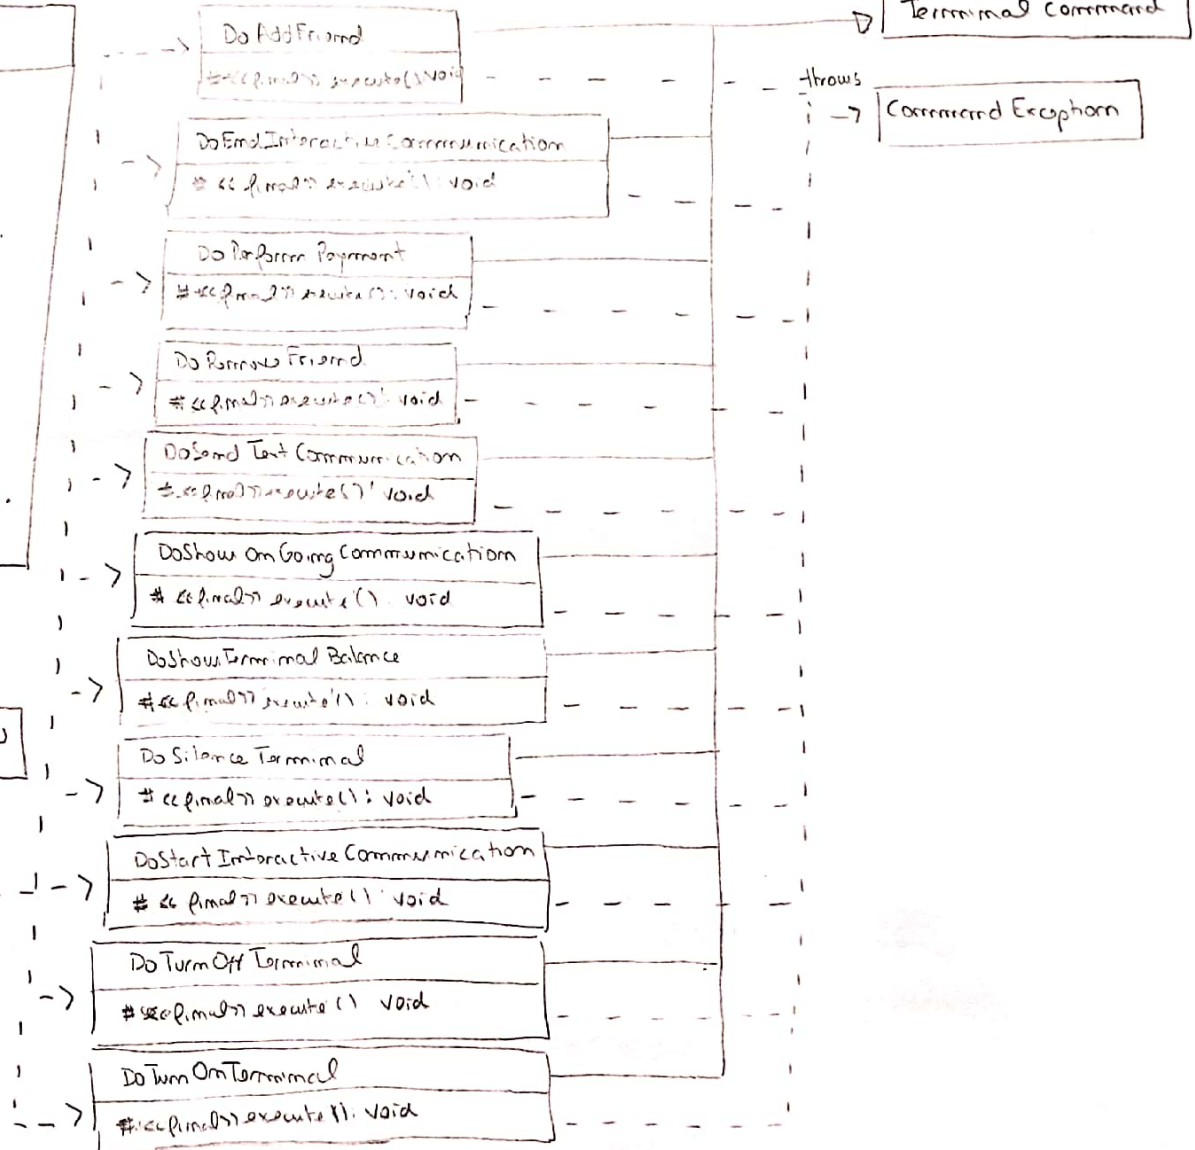 Terminal Command
DoAddFriend
#<<final>> execute():void
throws
Command Exception
DoEndInteractive Communication
# <<final>> execute(): void
Do Perform Payment
#<<final>> execute(): void
Do Remove Friend
#<<final>> execute(): void
DoSend Text Communication
#<<final>> execute(): void
DoShow OnGoing Communication
# <<final>> execute(): void
DoShowTerminal Balance
#<<final>> execute(): void
Do Silence Terminal
# <<final>> execute(): void
DoStart Interactive Communication
# <<final>> execute(): void
Do Turn Off Terminal
# <<final>> execute() void
Do Turn On Terminal
#<<final>> execute(): void